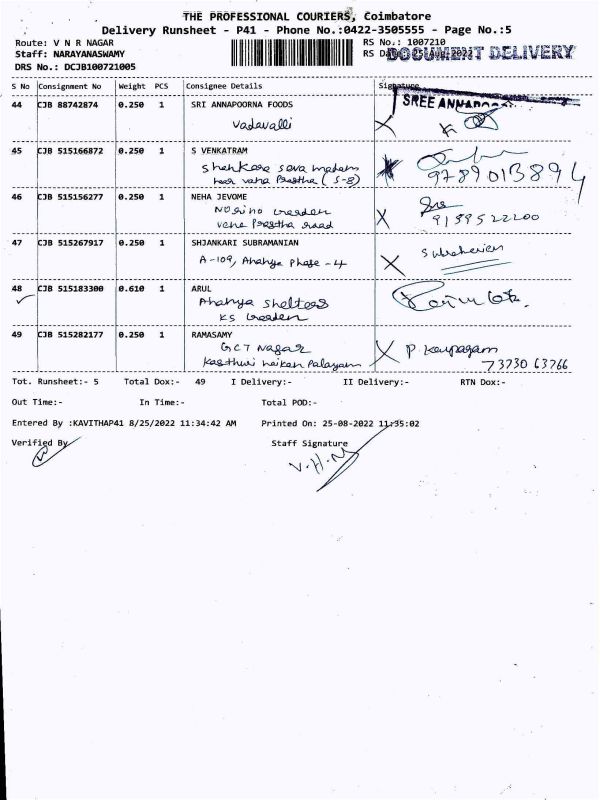 THE PROFESSIONAL COURIERS, Coimbatore
Delivery Runsheet - P41 - Phone No.:0422-3505555 - Page No.:5
Route: V N R NAGAR
RS No.: 1007210
Staff: NARAYANASWAMY
RS Date: 25-Aug-2022
DOCUMENT DELIVERY
DRS No.: DCJB100721005
S No Consignment No Weight PCS Consignee Details Signature
44 CJB 88742874 0.250 1 SRI ANNAPOORNA FOODS
SREE
Vadavalli
45 CJB 515166872 0.250 1 S VENKATRAM
9789013894
(S-8)
46 CJB 515156277 0.250 1 NEHA JEVOME
9159522200
47 CJB 515267917 0.250 1 SHJANKARI SUBRAMANIAN
A-109, Ahanya Phase-4
48 CJB 515183300 0.610 1 ARUL
Ahanya Shelters
KS Garden
49 CJB 515282177 0.250 1 RAMASAMY
GCT Nagar
P. Kaupagam
Kasthuri naiken Palayam
73730 63766
Tot. Runsheet:- 5 Total Dox:- 49 I Delivery:- II Delivery:- RTN Dox:-
Out Time:- In Time:- Total POD:-
Entered By :KAVITHAP41 8/25/2022 11:34:42 AM Printed On: 25-08-2022 11:35:02
Verified By Staff Signature
V.H.M